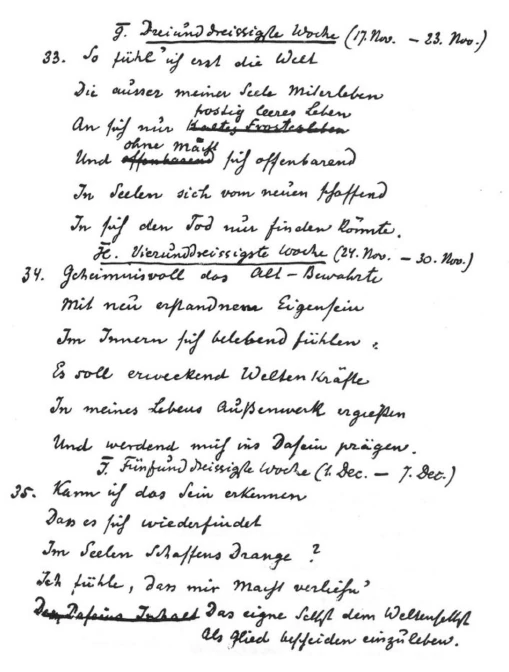 G. Dreiunddreissigste Woche (17. Nov. – 23. Nov.)
33. So fühl' ich erst die Welt
Die ausser meiner Seele Miterleben
frostig leeres Leben
An sich nur kaltes Frostesleben
ohne Macht
Und offenbarend sich offenbarend
In Seelen sich vom neuen schaffend
In sich den Tod nur finden könnte.
H. Vierunddreissigste Woche (24. Nov. – 30. Nov.)
34. Geheimnisvoll das Alt-Bewahrte
Mit neu erstandnem Eigensein
Im Innern sich belebend fühlen:
Es soll erweckend Weltenkräfte
In meines Lebens Außenwerk ergießen
Und werdend mich ins Dasein prägen.
I. Fünfunddreissigste Woche (1. Dec. – 7. Dec.)
35. Kann ich das Sein erkennen
Dass es sich wiederfindet
Im Seelen Schaffens Drange?
Ich fühle, dass mir Macht verlieh'n
Des Daseins Inhalt Das eigne Selbst dem Weltenselbst
Als Glied bescheiden einzuleben.